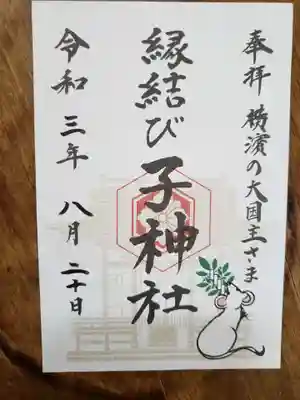 奉拝 横濱の大国主さま
縁結び子神社
令和三年八月二十日